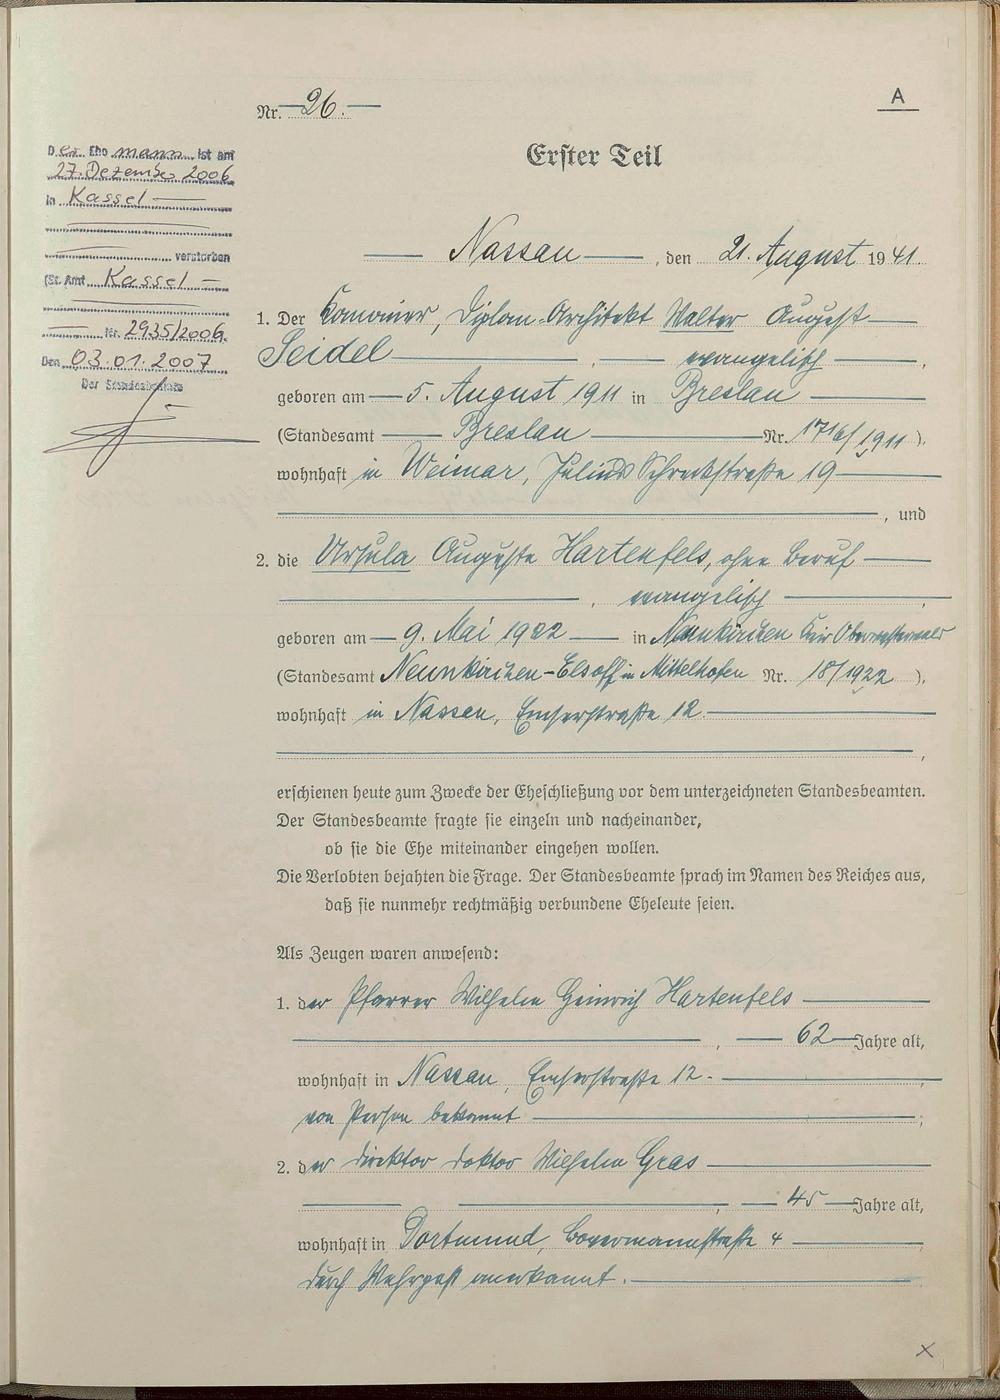 Nr. 26.
A
Erster Teil
Der Ehemann ist am
27. Dezember 2006
in Kassel
verstorben
(St. Amt Kassel
Nr. 2935/2006
Den 03.01.2007
Der Standesbeamte
Nassau, den 21. August 1941.
1. Der Diplom-Architekt Walter August
Seidel, evangelisch,
geboren am 5. August 1911 in Breslau
(Standesamt Breslau Nr. 1911).
wohnhaft in Weimar, Julius Schreckstraße 19
, und
2. die Ursula Auguste Hartenfels, ohne Beruf
, evangelisch,
geboren am 9. Mai 1922 in Neunkirchen Oberwesterwald
(Standesamt Neunkirchen-Elsoff in Mittelhofen Nr. 18/1922).
wohnhaft in Nassau, Emserstraße 12.
,
erschienen heute zum Zwecke der Eheschließung vor dem unterzeichneten Standesbeamten.
Der Standesbeamte fragte sie einzeln und nacheinander,
ob sie die Ehe miteinander eingehen wollen.
Die Verlobten bejahten die Frage. Der Standesbeamte sprach im Namen des Reiches aus,
daß sie nunmehr rechtmäßig verbundene Eheleute seien.
Als Zeugen waren anwesend:
1. der Pfarrer Wilhelm Heinrich Hartenfels
, 62 Jahre alt,
wohnhaft in Nassau, Emserstraße 12.
von Person bekannt;
2. der Direktor Doktor Wilhelm Gras
, 45 Jahre alt,
wohnhaft in Dortmund, 4
durch Wehrpaß anerkannt.